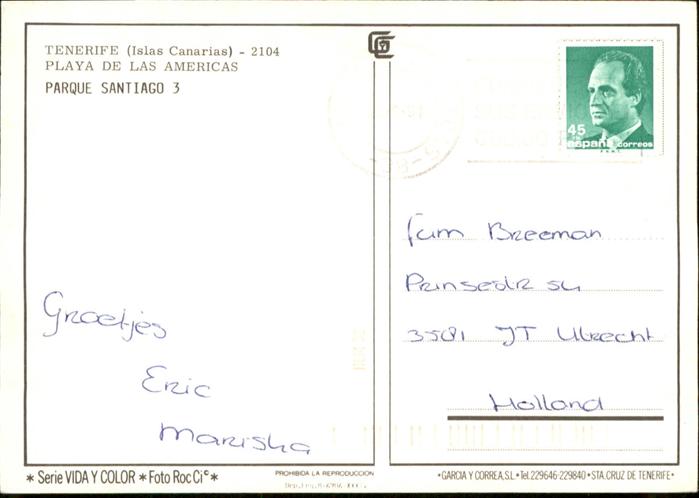 TENERIFE (Islas Canarias) - 2104
PLAYA DE LAS AMERICAS
PARQUE SANTIAGO 3
45
españa correos
Groetjes
Eric
Mariska
Fam Breeman
3581 JT Utrecht
Holland
* Serie VIDA Y COLOR * Foto Roc Ci© *
PROHIBIDA LA REPRODUCCION
* GARCIA Y CORREA, S.L. * Tel. 229646-229840 * STA. CRUZ DE TENERIFE *